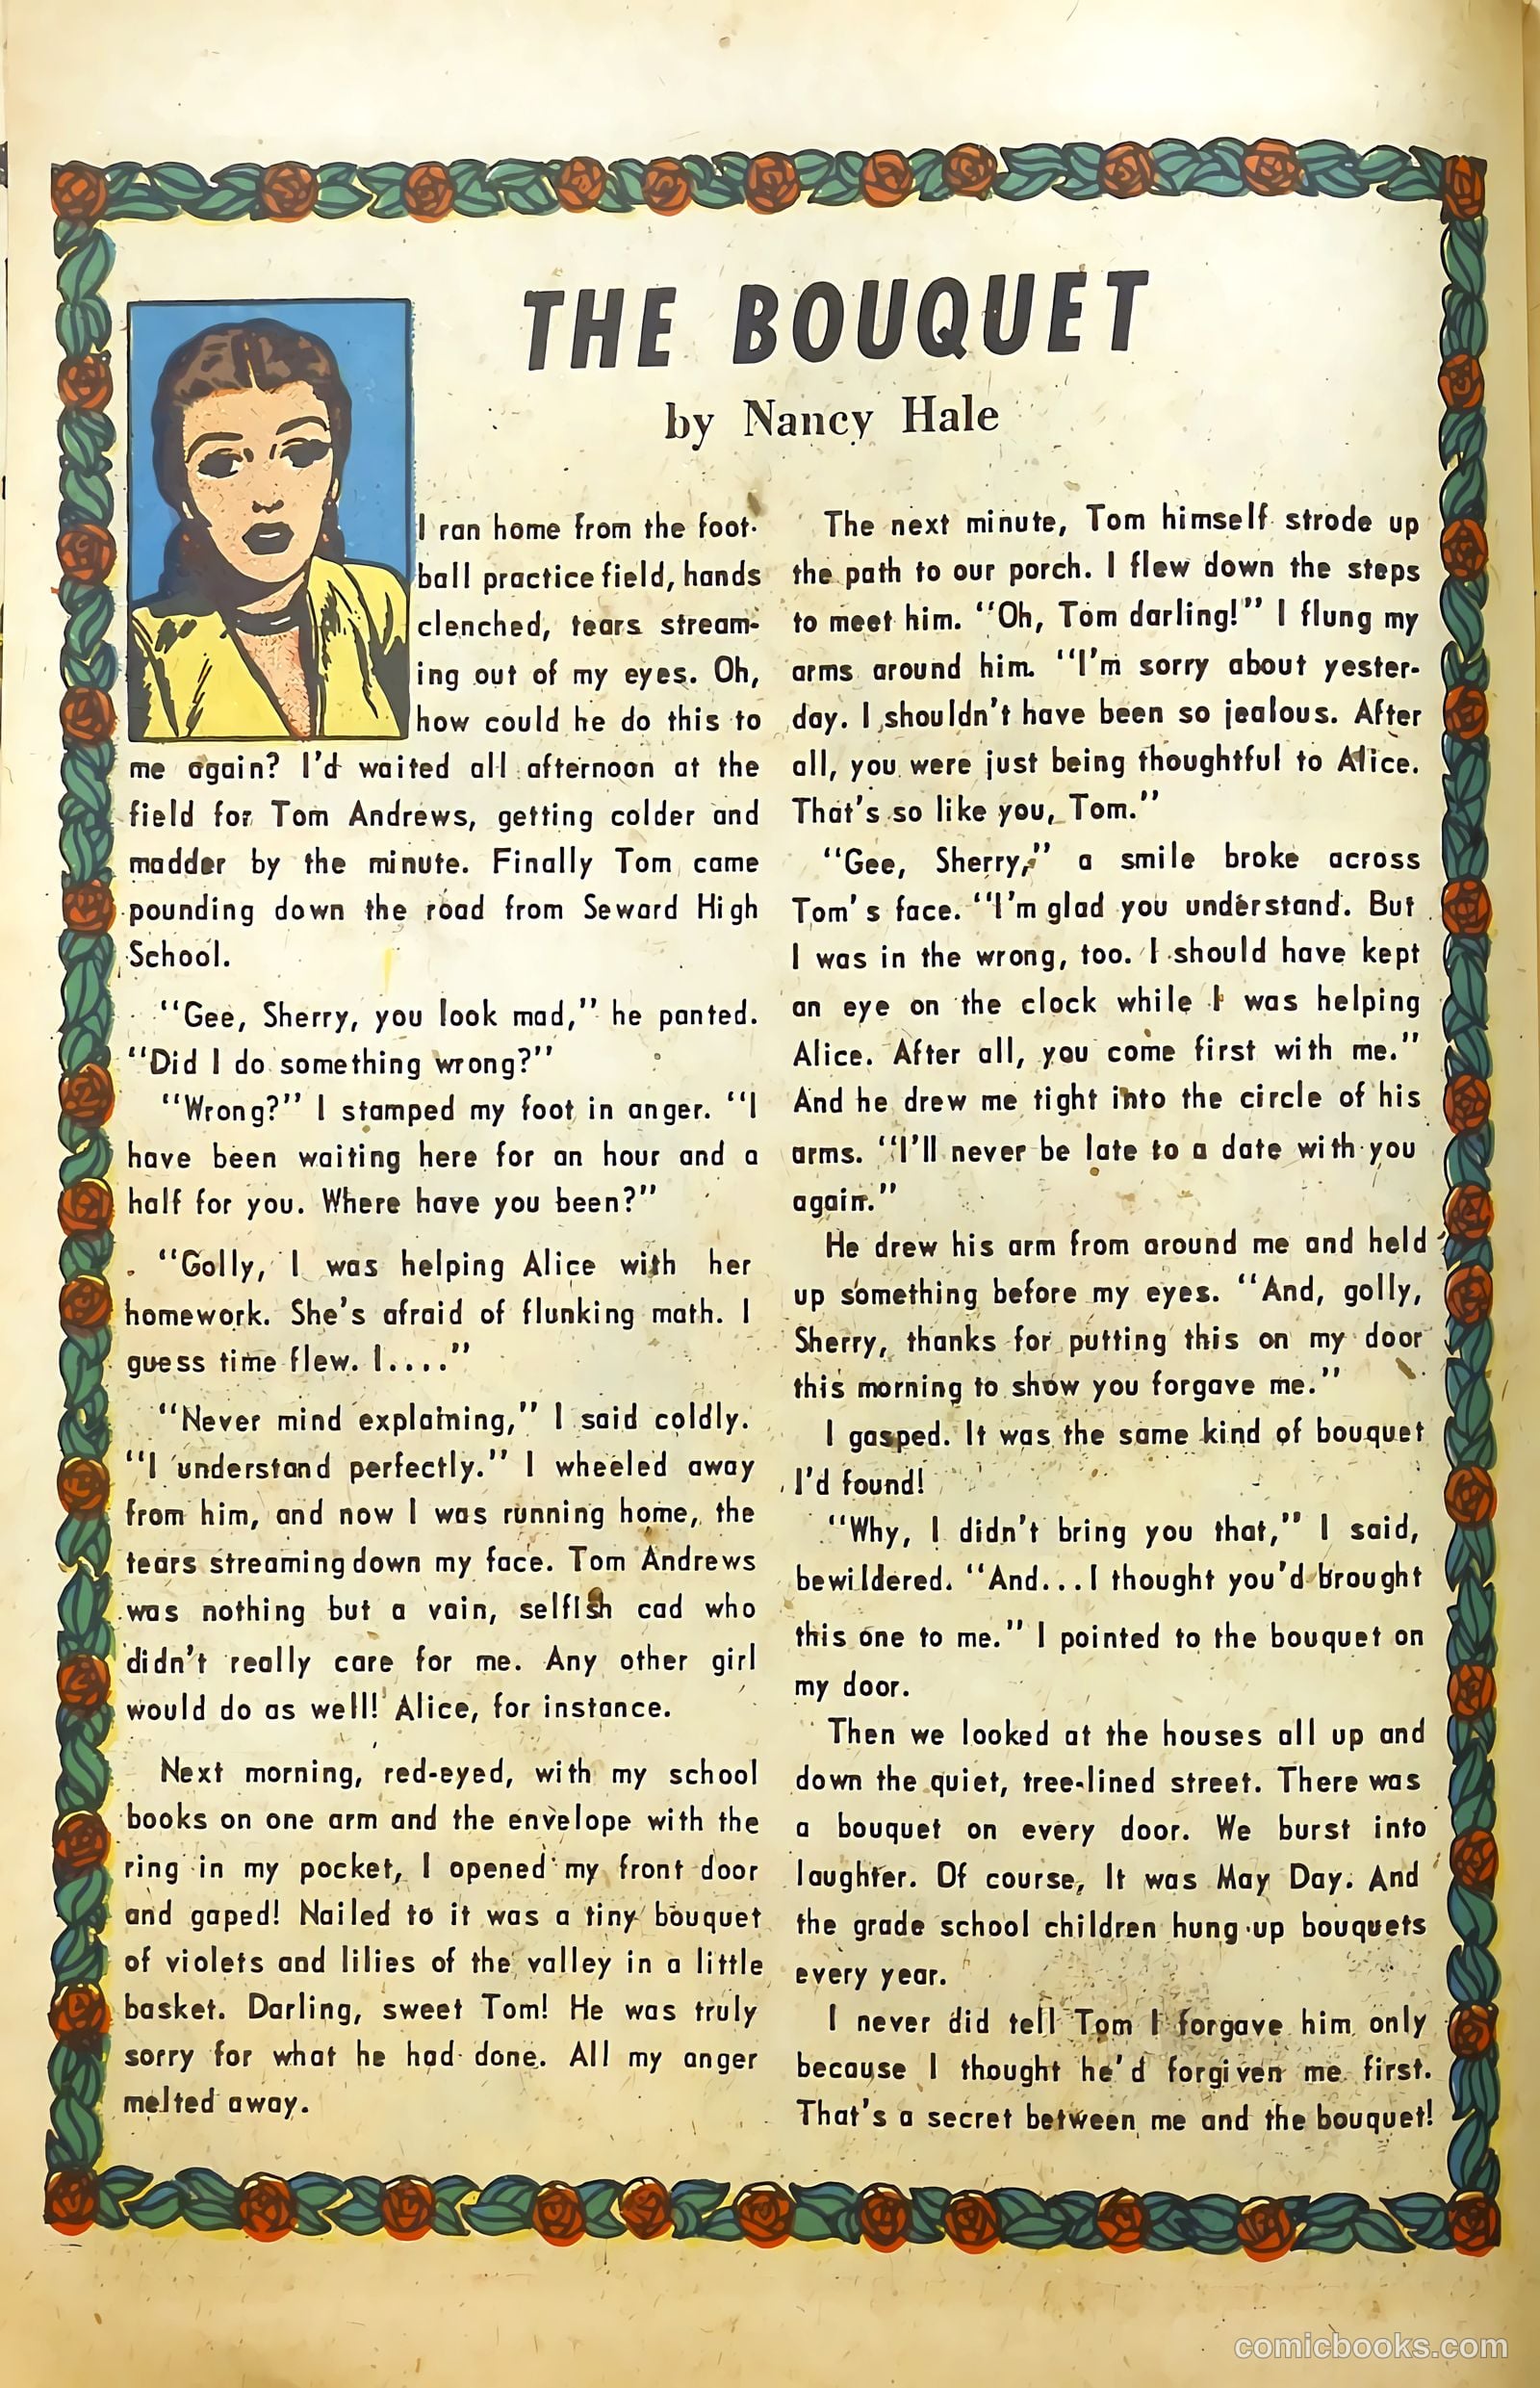 THE BOUQUET
by Nancy Hale
I ran home from the foot-
ball practice field, hands
clenched, tears stream-
ing out of my eyes. Oh,
how could he do this to
me again? I'd waited all afternoon at the
field for Tom Andrews, getting colder and
madder by the minute. Finally Tom came
pounding down the road from Seward High
School.
"Gee, Sherry, you look mad," he panted.
"Did I do something wrong?"
"Wrong?" I stamped my foot in anger. "I
have been waiting here for an hour and a
half for you. Where have you been?"
"Golly, I was helping Alice with her
homework. She's afraid of flunking math. I
guess time flew. I...."
"Never mind explaining," I said coldly.
"I understand perfectly." I wheeled away
from him, and now I was running home, the
tears streaming down my face. Tom Andrews
was nothing but a vain, selfish cad who
didn't really care for me. Any other girl
would do as well! Alice, for instance.
Next morning, red-eyed, with my school
books on one arm and the envelope with the
ring in my pocket, I opened my front door
and gaped! Nailed to it was a tiny bouquet
of violets and lilies of the valley in a little
basket. Darling, sweet Tom! He was truly
sorry for what he had done. All my anger
melted away.
The next minute, Tom himself strode up
the path to our porch. I flew down the steps
to meet him. "Oh, Tom darling!" I flung my
arms around him. "I'm sorry about yester-
day. I shouldn't have been so jealous. After
all, you were just being thoughtful to Alice.
That's so like you, Tom."
"Gee, Sherry," a smile broke across
Tom's face. "I'm glad you understand. But
I was in the wrong, too. I should have kept
an eye on the clock while I was helping
Alice. After all, you come first with me."
And he drew me tight into the circle of his
arms. "I'll never be late to a date with you
again."
He drew his arm from around me and held
up something before my eyes. "And, golly,
Sherry, thanks for putting this on my door
this morning to show you forgave me."
I gasped. It was the same kind of bouquet
I'd found!
"Why, I didn't bring you that," I said,
bewildered. "And...I thought you'd brought
this one to me." I pointed to the bouquet on
my door.
Then we looked at the houses all up and
down the quiet, tree-lined street. There was
a bouquet on every door. We burst into
laughter. Of course, It was May Day. And
the grade school children hung up bouquets
every year.
I never did tell Tom I forgave him only
because I thought he'd forgiven me first.
That's a secret between me and the bouquet!
comicbooks.com